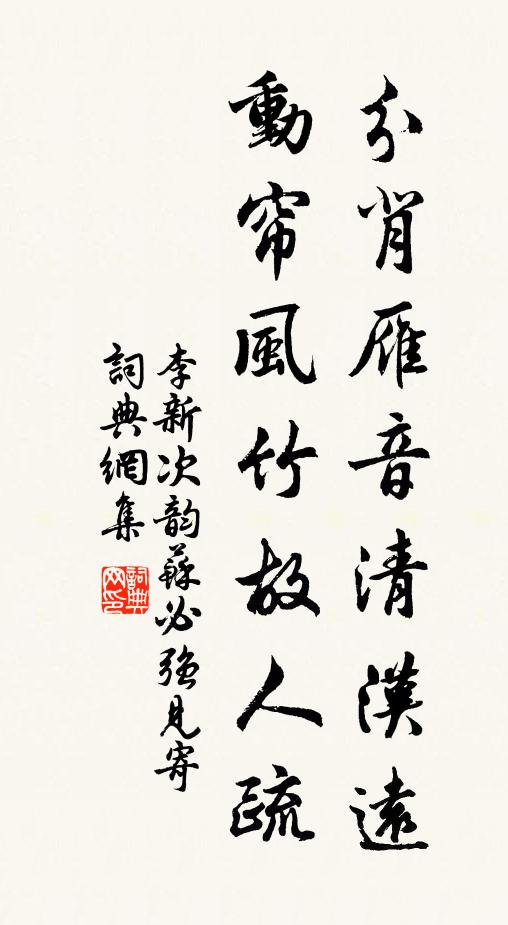 分背雁音清漢遠
動帘風竹故人疏
李新次韵蘇必強見寄
詞典網集
詞典網印